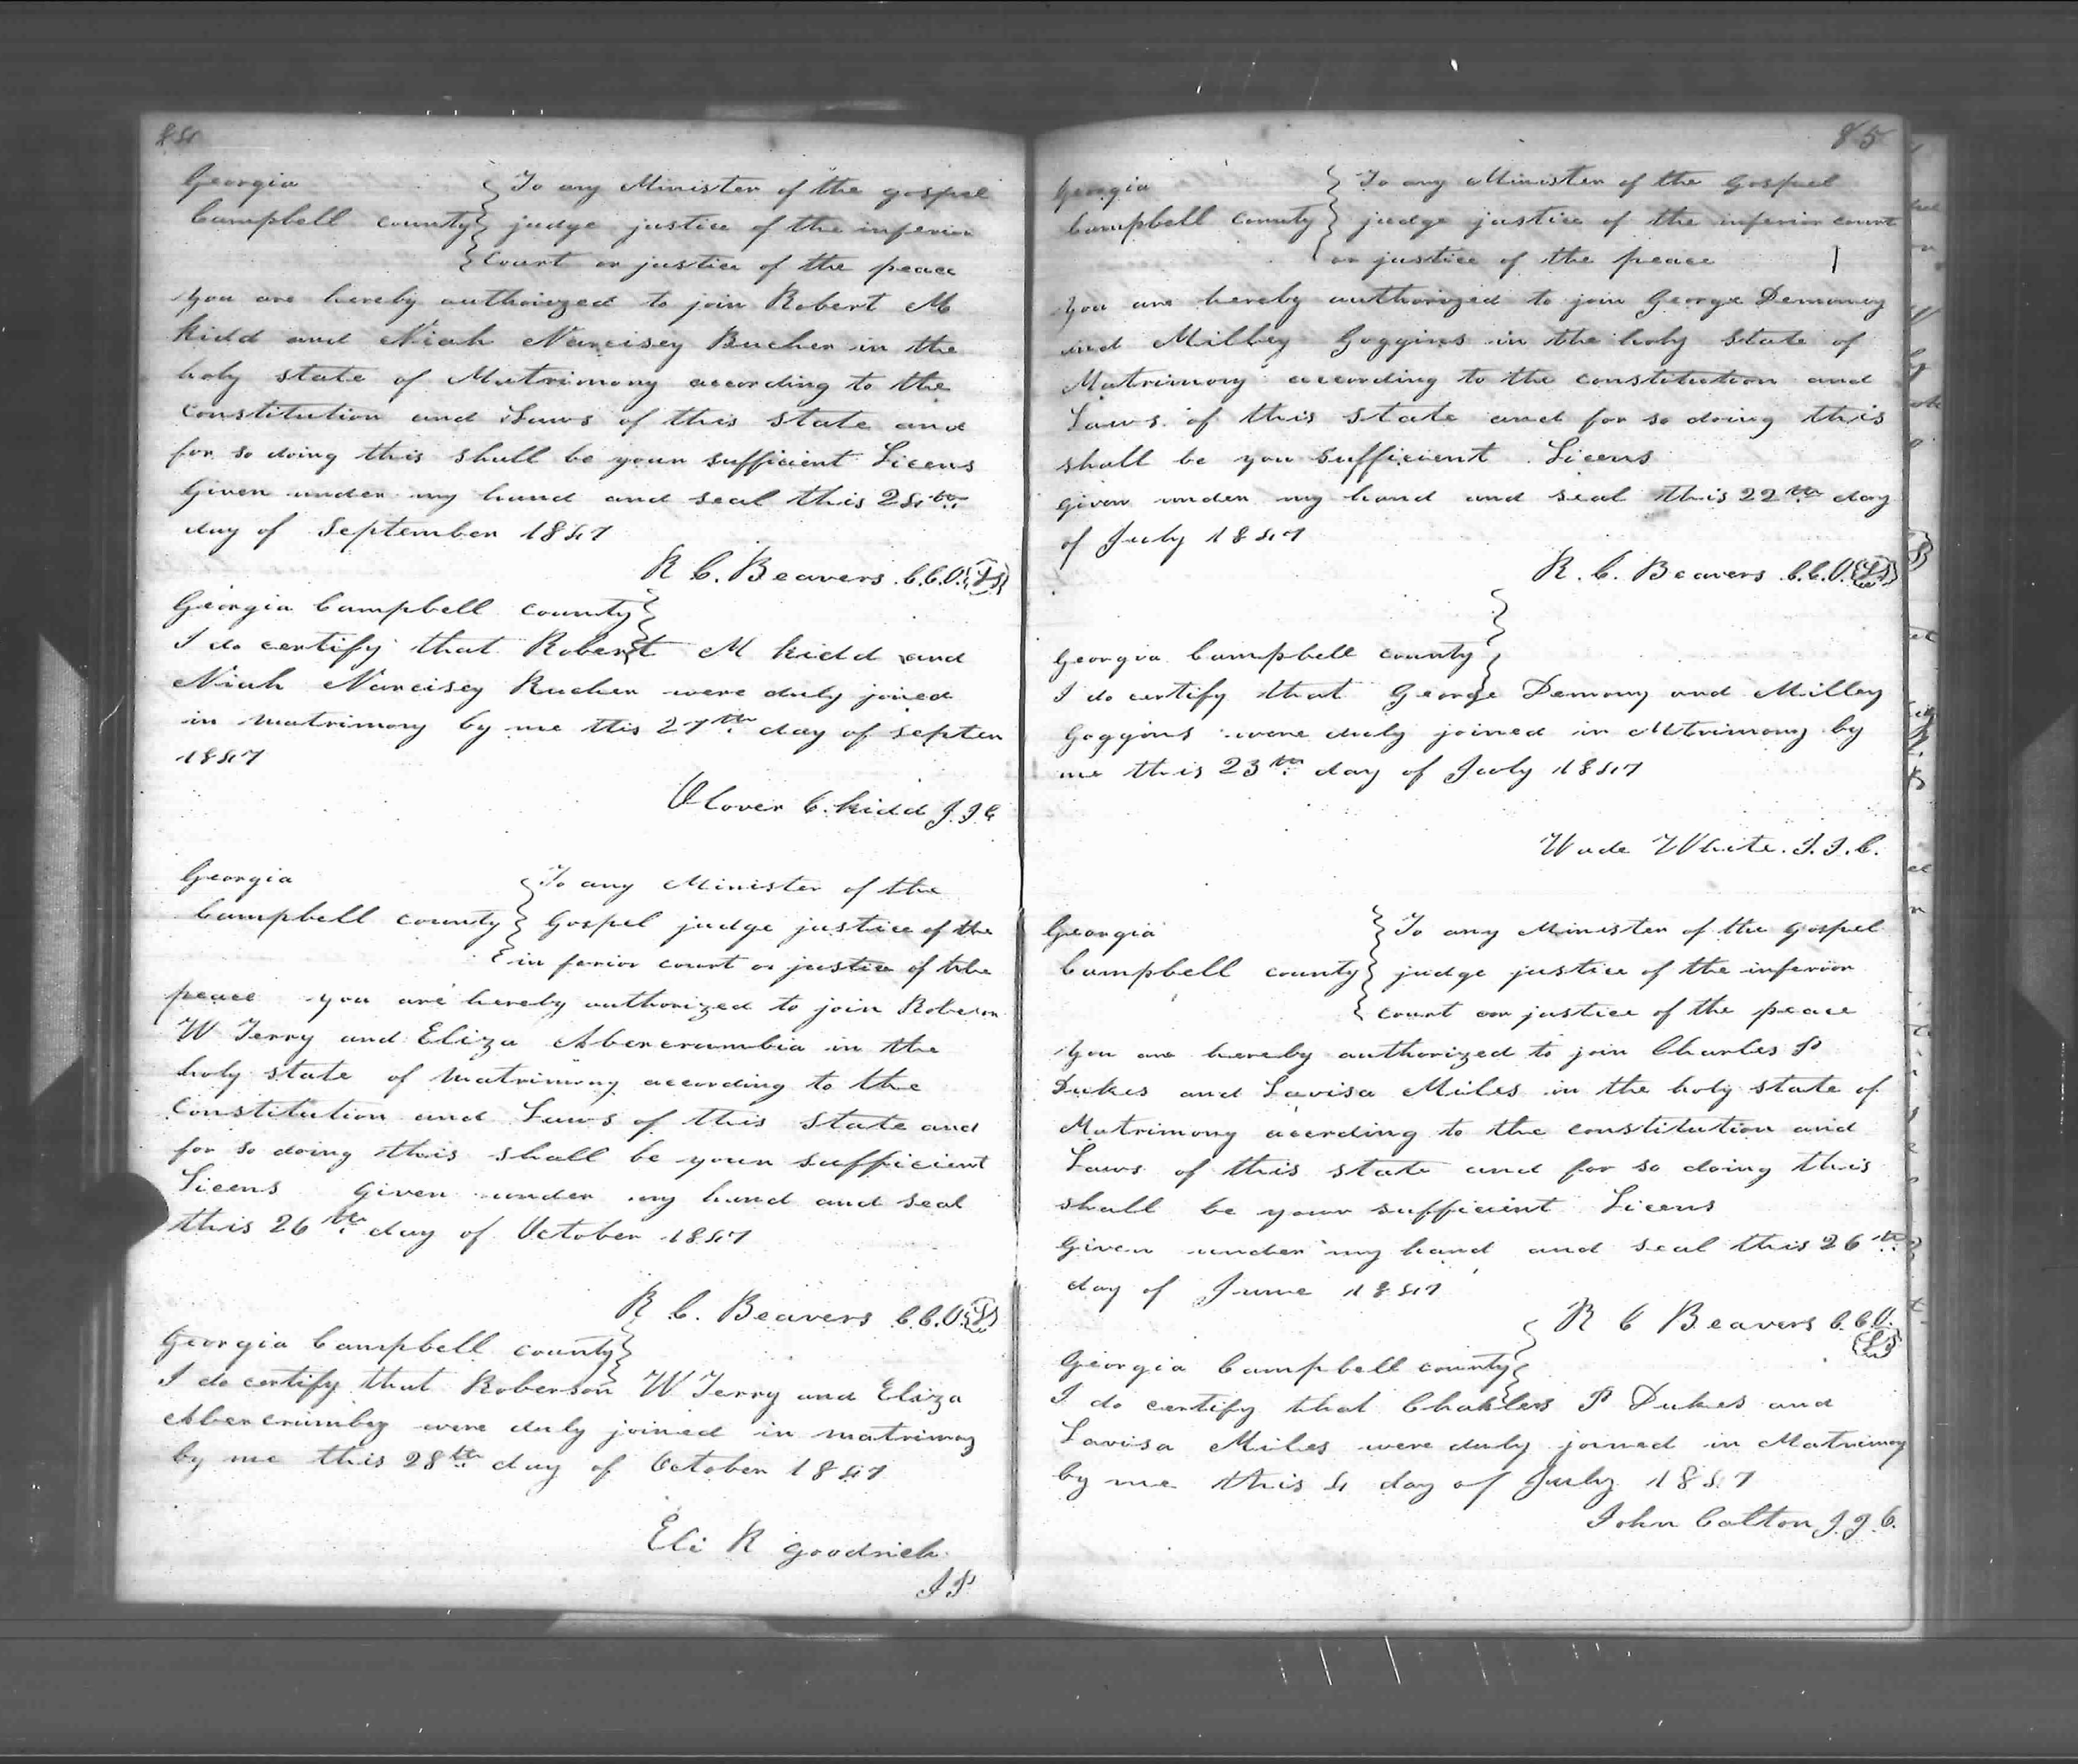 84
Georgia
Campbell county
To any Minister of the gospel
judge justice of the inferior
court or justice of the peace
you are hereby authorized to join Robert M
Kidd and Niah Narcisey Rucher in the
holy state of Matrimony according to the
constitution and Laws of this state and
for so doing this shall be your sufficient Licens
Given under my hand and seal this 24th
day of September 1847
R C. Beavers C.C.O. LS
Georgia Campbell county
I do certify that Robert M Kidd and
Niah Narcisey Rucher were duly joined
in matrimony by me this 27th day of Septem
1847
Olover C. Kidd J.I.C
Georgia
Campbell county
To any Minister of the
Gospel judge justice of the
in ferior court or justice of the
peace you are hereby authorized to join Roberson
W Terry and Eliza Abercrumbia in the
holy state of Matrimony according to the
constitution and Laws of this state and
for so doing this shall be your sufficient
Licens given under my hand and seal
this 26th day of October 1847
R C. Beavers C.C.O. LS
Georgia Campbell county
I do certify that Roberson W Terry and Eliza
Abercrumbey were duly joined in matrimony
by me this 28th day of October 1847
Eli R goodrich
J P
85
Georgia
Campbell county
To any Minister of the Gospel
judge justice of the inferior court
or justice of the peace
you are hereby authorized to join George Demoney
and Milley Goggins in the holy state of
Matrimony according to the constitution and
Laws of this state and for so doing this
shall be you sufficient Licens
given under my hand and seal this 22th day
of July 1847
R. C. Beavers C.C.O. LS
Georgia Campbell county
I do certify that George Demony and Milley
Goggins were duly joined in Mtrimony by
me this 23th day of July 1847
Wade White. J.I.C.
Georgia
Campbell county
To any Minister of the Gospel
judge justice of the inferior
court or justice of the peace
you are hereby authorized to join Charles P
Dukes and Lavisa Miles in the holy state of
Matrimony acerding to the constitution and
Laws of this state and for so doing this
shall be your sufficient Licens
Given under my hand and seal this 26th
day of June 1847
R C Beavers C.C.O.
LS
Georgia Campbell county
I do certify that Charles P Dukes and
Lavisa Miles were duly joined in Matrimoy
by me this 4 day of July 1847
John Colton J.I.C.